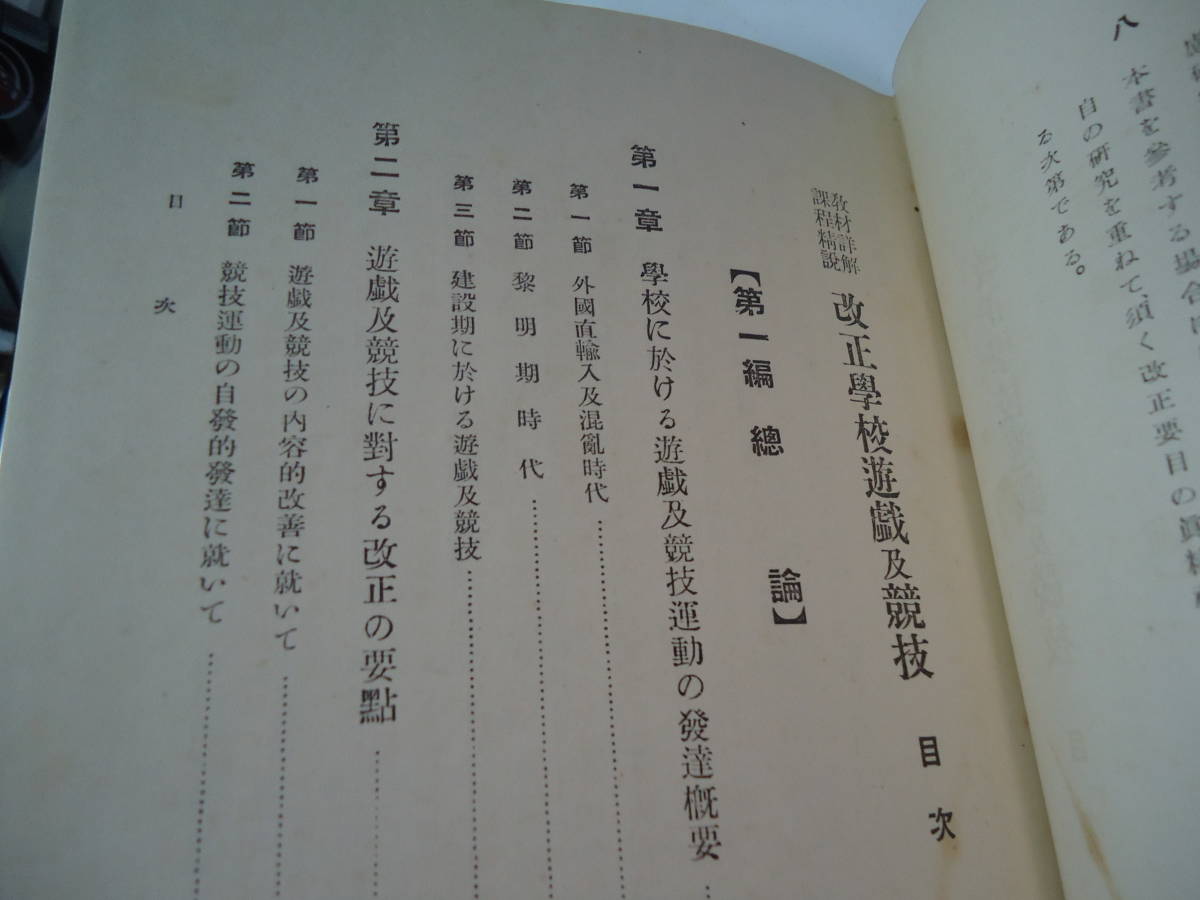 八　本書を參考する場合に
自の研究を重ねて、須く改正要目の
る次第である。
教材詳解
課程精說
改正學校遊戲及競技　目次
【第一編　總論】
第一章　學校に於ける遊戲及競技運動の發達槪要
第一節　外國直輸入及混亂時代
第二節　黎明期時代
第三節　建設期に於ける遊戲及競技
第二章　遊戲及競技に對する改正の要點
第一節　遊戲及競技の內容的改善に就いて
第二節　競技運動の自發的發達に就いて
目次